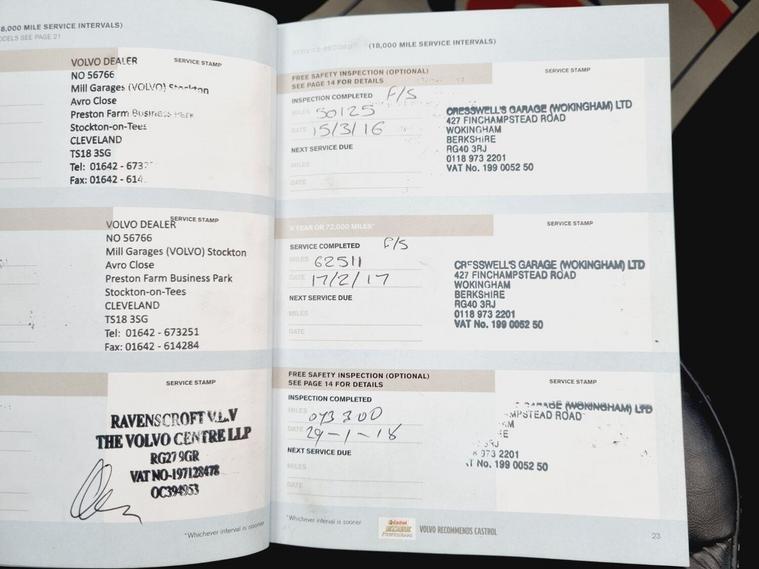 8,000 MILE SERVICE INTERVALS)
ODELS SEE PAGE 21
SERVICE STAMP
VOLVO DEALER
NO 56766
Mill Garages (VOLVO) Stockton
Avro Close
Preston Farm Business Park
Stockton-on-Tees
CLEVELAND
TS18 3SG
Tel: 01642 - 673
Fax: 01642 - 614
SERVICE STAMP
VOLVO DEALER
NO 56766
Mill Garages (VOLVO) Stockton
Avro Close
Preston Farm Business Park
Stockton-on-Tees
CLEVELAND
TS18 3SG
Tel: 01642 - 673251
Fax: 01642 - 614284
SERVICE STAMP
RAVENSCROFT V.L.V
THE VOLVO CENTRE LLP
RG27 9GR
VAT NO-197128478
OC394953
*Whichever interval is sooner
SERVICE RECORD (18,000 MILE SERVICE INTERVALS)
FREE SAFETY INSPECTION (OPTIONAL)
SEE PAGE 14 FOR DETAILS
SERVICE STAMP
INSPECTION COMPLETED F/S
MILES 50125
DATE 15/3/16
NEXT SERVICE DUE
MILES
DATE
CRESSWELL'S GARAGE (WOKINGHAM) LTD
427 FINCHAMPSTEAD ROAD
WOKINGHAM
BERKSHIRE
RG40 3RJ
0118 973 2201
VAT No. 199 0052 50
YEAR OR 72,000 MILES*
SERVICE STAMP
SERVICE COMPLETED F/S
MILES 62511
DATE 17/2/17
NEXT SERVICE DUE
MILES
DATE
CRESSWELL'S GARAGE (WOKINGHAM) LTD
427 FINCHAMPSTEAD ROAD
WOKINGHAM
BERKSHIRE
RG40 3RJ
0118 973 2201
VAT No. 199 0052 50
FREE SAFETY INSPECTION (OPTIONAL)
SEE PAGE 14 FOR DETAILS
SERVICE STAMP
INSPECTION COMPLETED
MILES 073300
DATE 29-1-18
NEXT SERVICE DUE
MILES
DATE
GARAGE (WOKINGHAM) LTD
MPSTEAD ROAD
973 2201
T No. 199 0052 50
*Whichever interval is sooner
Castrol
PROFESSIONAL
VOLVO RECOMMENDS CASTROL
23